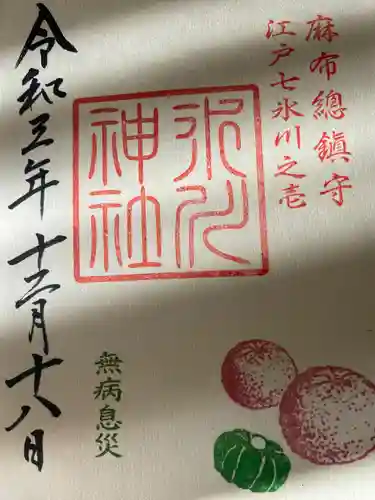 麻布總鎮守
江戸七氷川之壱
氷川神社
令和三年十二月十八日
無病息災